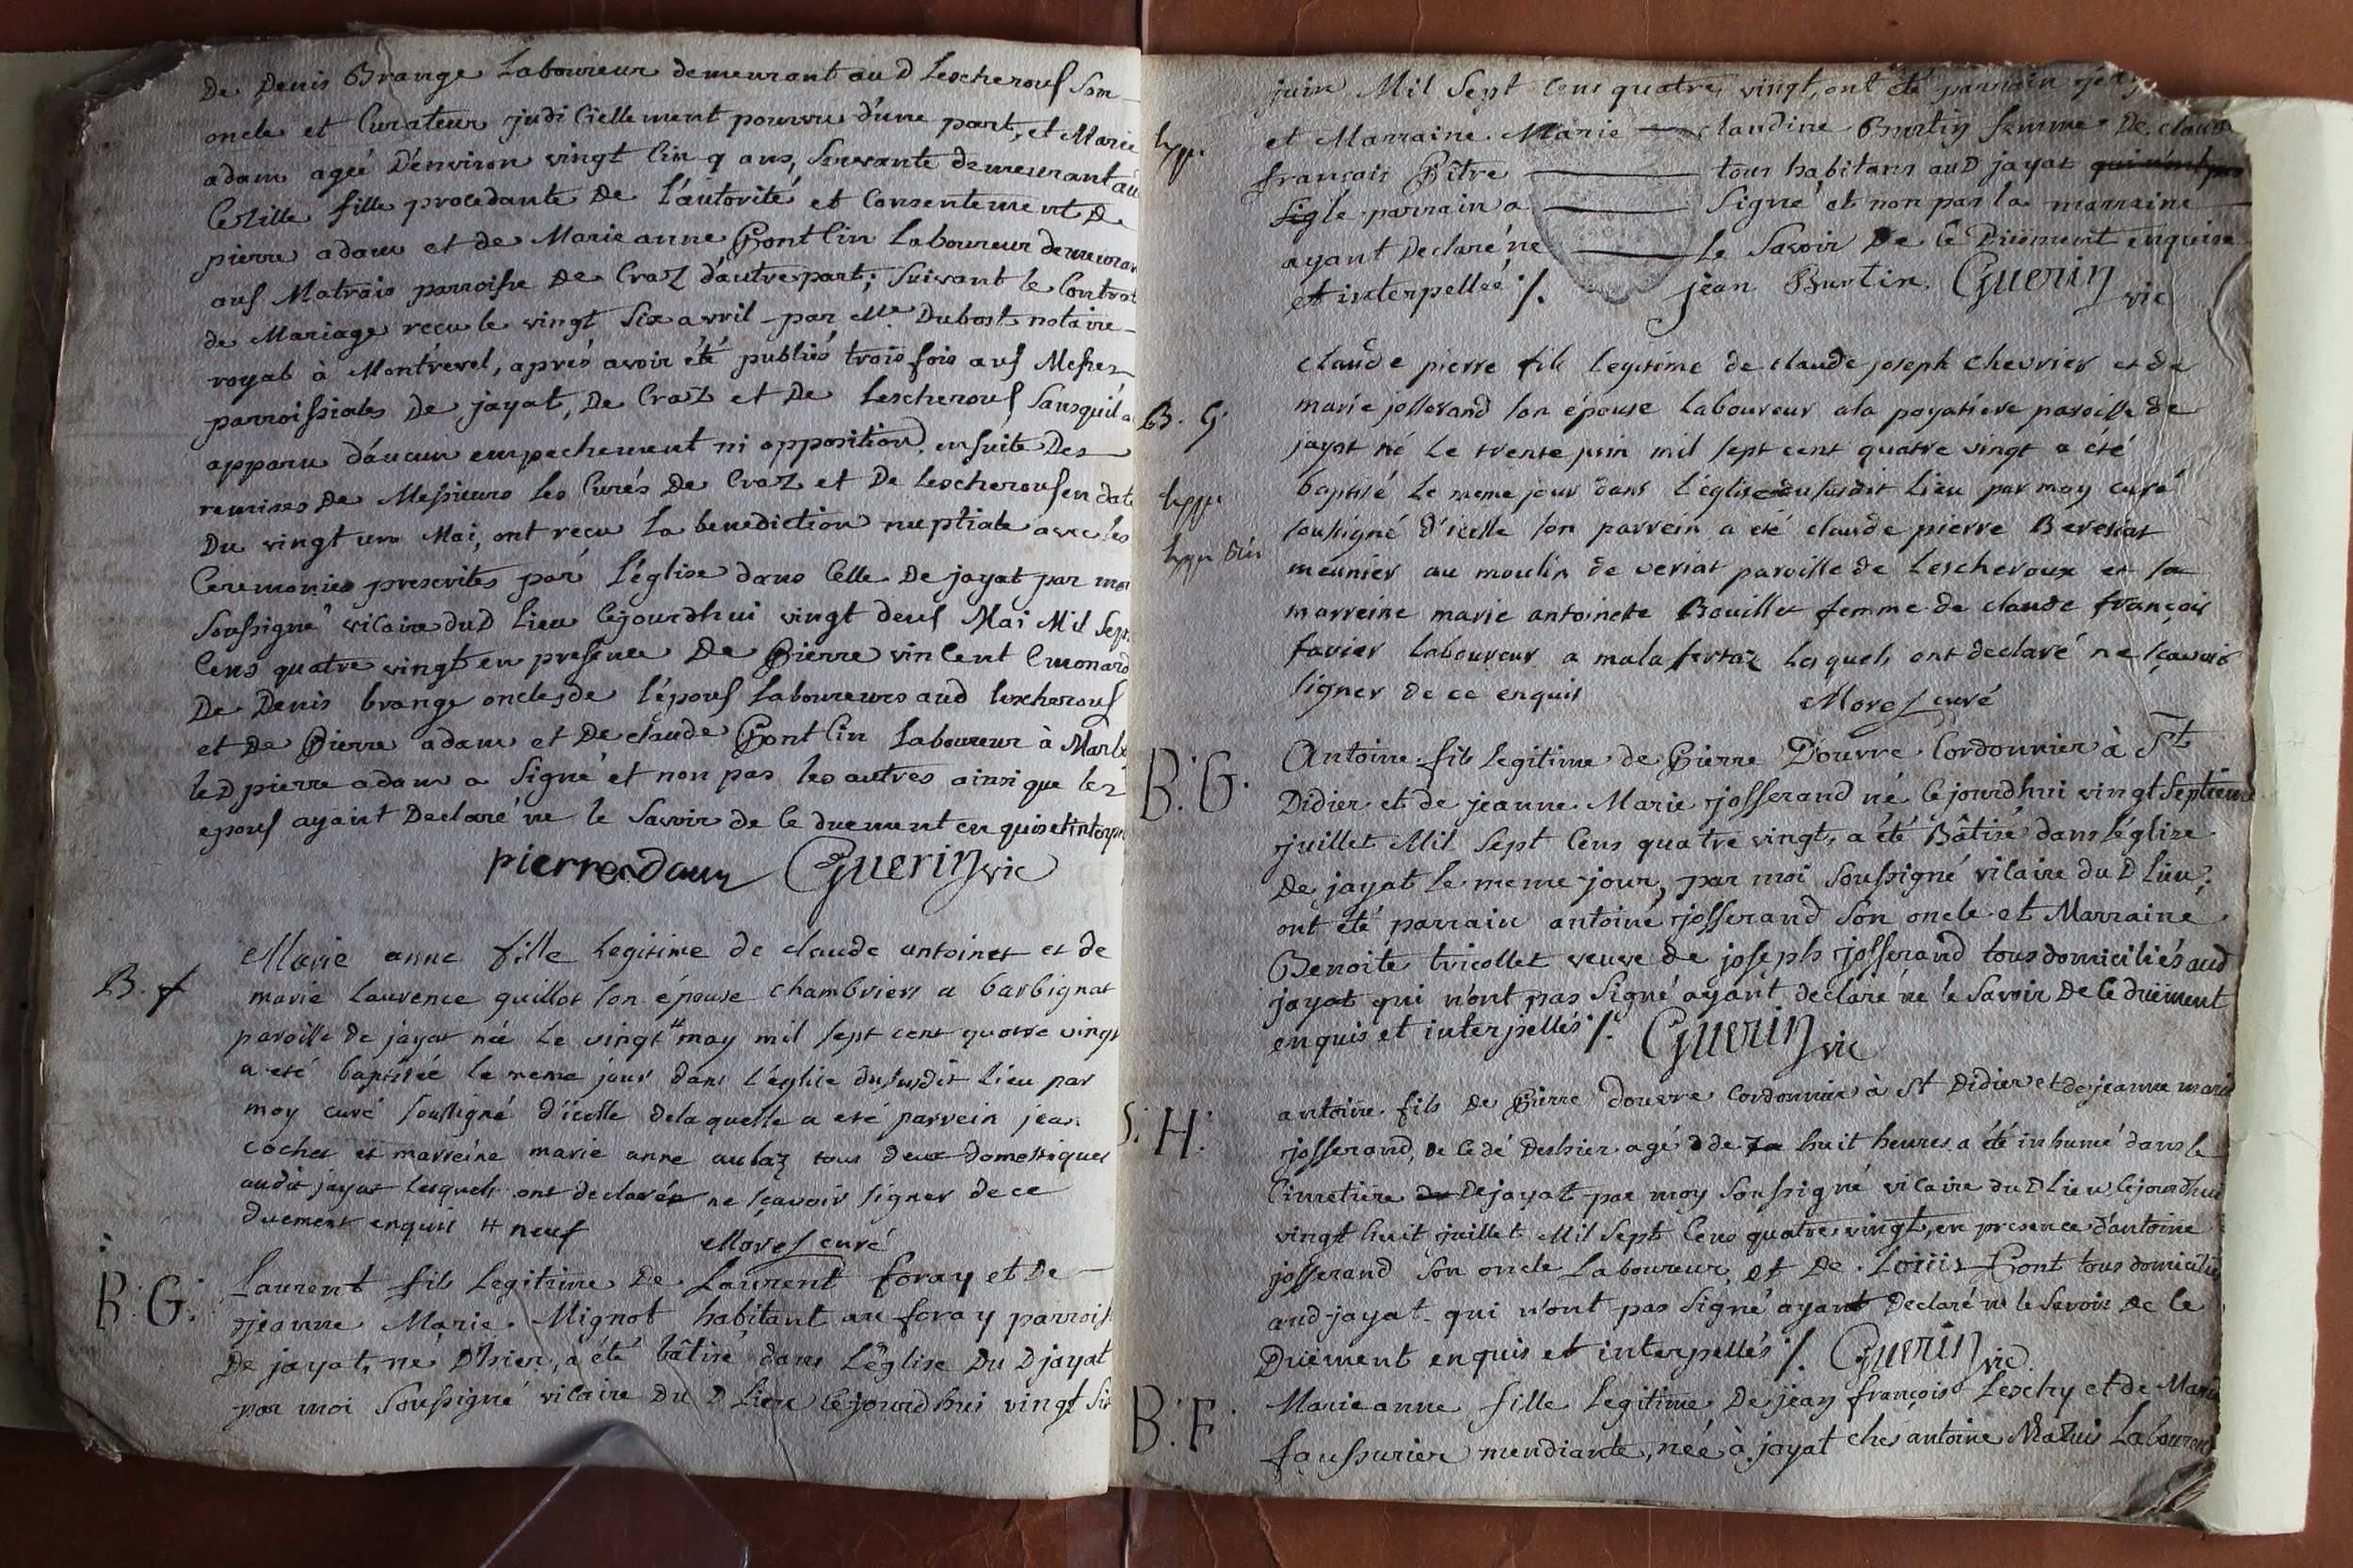 De Denis Brange Laboureur demeurant au D Lescherous son
oncle et Curateur judiciellement pourvu d'une part, et Marie
adam ageé D'environ vingt cinq ans, servante demeurant au
fille procedante De L'autorité et Consentement De
pierre adam et de Marie anne Pontcin Laboureur demeurant
aus Matrais parroisse De Craz d'autre part; suivant le Contrat
de Mariage recu le vingt six avril par Me Dubost notaire
royal à Montrevel, après avoir été publiés trois fois aus Messes
parroissiales De jayat, De Craz et De Lescherous sans qu'il a
apparu d'aucun empechement ni opposition, ensuite Des
remises De Messieurs les Curés De Craz et De Lescherous en date
Du vingt un Mai, ont reçu La benediction nuptiale avec les
Ceremonies prescrites par L'église dans Celle De jayat par moi
soussigné vicaire du D Lieu cejourdhui vingt deus Mai Mil Sept
Cens quatre vingt en presence De Pierre vincent
De Denis brange oncles de L'épous Laboureurs aud Lescherous
et De Pierre adam et De claude Pontcin Laboureur à
le D pierre adam a signé et non pas les autres ainsi que les
epous ayant Declaré ne le savoir de ce duement enquis et
pierre adam Guerin vic
B. f Marie anne fille legitime de claude antoinet et de
marie laurence guillot son épouse chambriers a barbignat
paroisse de jayat née le vingt # may mil sept cent quatre vingt
a eté baptisée le meme jour dans l'église du susdit lieu par
moy curé soussigné d'icelle de laquelle a eté parrein jean
cochet et marreine marie anne aulaz tous deux domestiques
audit jayat lesquels ont declarés ne sçavoir signer de ce
duement enquis # neuf
Morel curé
B. G. Laurent fils legitime De Laurent foray et De
jeanne Marie Mignot habitant au foray parroisse
De jayat, né D'hier, a été bâtisé dans L'église Du D jayat
par moi soussigné vicaire Du D Lieu cejourdhui vingt six
juin Mil Sept Cens quatre vingt, ont été parrain
et Marraine Marie claudine Burtin femme De
françois Pitre tous habitans au D jayat qui n'ont pas
sig le parrain a signé et non pas la marraine
ayant Declaré ne le savoir De Ce Duement enquise
et interpelleé ./. jean Burtin. Guerin vic
B. G. claude pierre fils legitime de claude joseph chevrier et de
marie josserand son épouse laboureur a la poyatiere paroisse de
jayat né le trente juin mil sept cent quatre vingt a eté
baptisé le meme jour dans l'église du susdit lieu par moy curé
soussigné d'icelle son parrein a eté claude pierre Bereziat
meunier au moulin de veriat paroisse de Lescheroux et la
marreine marie antoinete Bouillet femme de claude françois
favier laboureur a malafertaz lesquels ont declaré ne sçavoir
signer de ce enquis
Morel curé
B. G. Antoine fils legitime de Pierre Douvre Cordonnier à St
Didier et de jeanne Marie josserand né cejourdhui vingt septieme
juillet Mil Sept Cens quatre vingt, a été Bâtisé dans l'église
De jayat le meme jour, par moi soussigné vicaire du D Lieu;
ont été parrain antoine josserand son oncle et Marraine
Benoite tricollet veuve De joseph josserand tous domiciliés aud
jayat qui n'ont pas signé ayant declaré ne le savoir De Ce duement
enquis et interpellés ./. Guerin vic
S. H. antoine fils De Pierre Douvre Cordonnier à St Didier et de jeanne marie
josserand, De cedé Deshier agé de huit heures a été inhumé dans le
Cimetiere De jayat par moy soussigné vicaire du D Lieu, cejourdhui
vingt huit juillet Mil Sept Cens quatre vingt, en presence d'antoine
josserand son oncle Laboureur, et De Loüis Pont tous domiciliés
aud jayat qui n'ont pas signé ayant Declaré ne le savoir De Ce
Duement enquis et interpellés ./. Guerin vic.
B. F. Marie anne fille legitime De jean françois Leschy et de Marie
faussurier mendiante, neé à jayat chés antoine Mazuis Laboureur